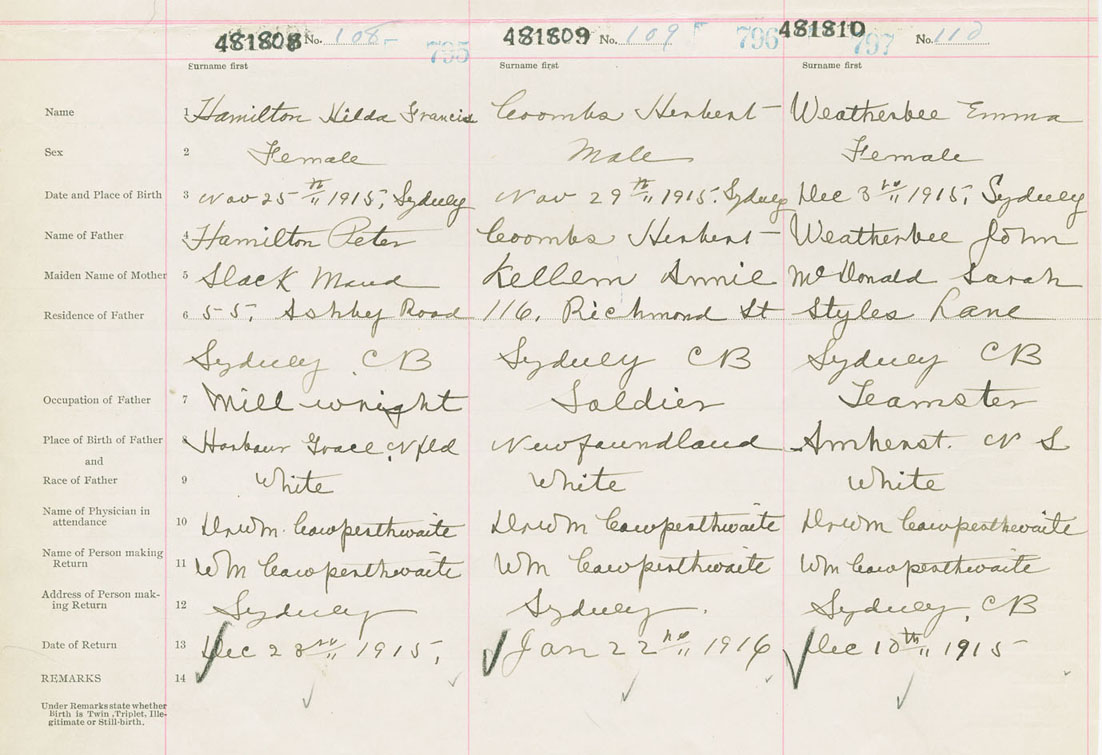 481808 No. 108 795 481809 No. 109 796 481810 797 No. 110
Surname first Surname first Surname first
Name 1 Hamilton Hilda Francis Coombs Herbert Weatherbee Emma
Sex 2 Female Male Female
Date and Place of Birth 3 Nov 25th 1915, Sydney Nov 29th 1915. Sydney Dec 3rd 1915, Sydney
Name of Father 4 Hamilton Peter Coombs Herbert Weatherbee John
Maiden Name of Mother 5 Slack Maud Kellem Annie McDonald Sarah
Residence of Father 6 55, Ashby Road 116, Richmond St Styles Lane
Sydney CB Sydney CB Sydney CB
Occupation of Father 7 Mill wright Soldier Teamster
Place of Birth of Father 8 Harbour Grace, Nfld Newfoundland Amherst. N S
and
Race of Father 9 White White White
Name of Physician in
attendance 10 Dr Wm. Cowperthwaite Dr Wm Cowperthwaite Dr Wm Cowperthwaite
Name of Person making
Return 11 Wm Cowperthwaite Wm Cowperthwaite Wm Cowperthwaite
Address of Person mak-
ing Return 12 Sydney Sydney. Sydney, CB
Date of Return 13 Dec 23rd 1915, Jan 22nd 1916 Dec 10th 1915
REMARKS 14
Under Remarks state whether
Birth is Twin, Triplet, Ille-
gitimate or Still-birth.